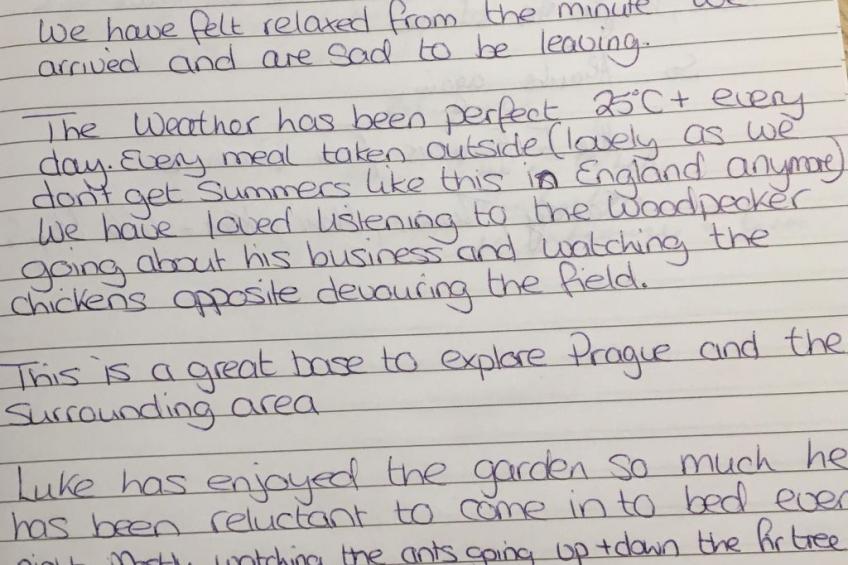 We have felt relaxed from the minute we
arrived and are sad to be leaving.
The Weather has been perfect 25°C + every
day. Every meal taken outside (lovely as we
don't get Summers like this in England anymore)
We have loved listening to the Woodpecker
going about his business and watching the
chickens opposite devouring the field.
This is a great base to explore Prague and the
surrounding area
Luke has enjoyed the garden so much he
has been reluctant to come in to bed ever
night. Mostly watching the ants going up + down the fir tree